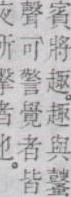 賓將趣。趣與鼜
聲可警覺者皆
夜所擊者也。